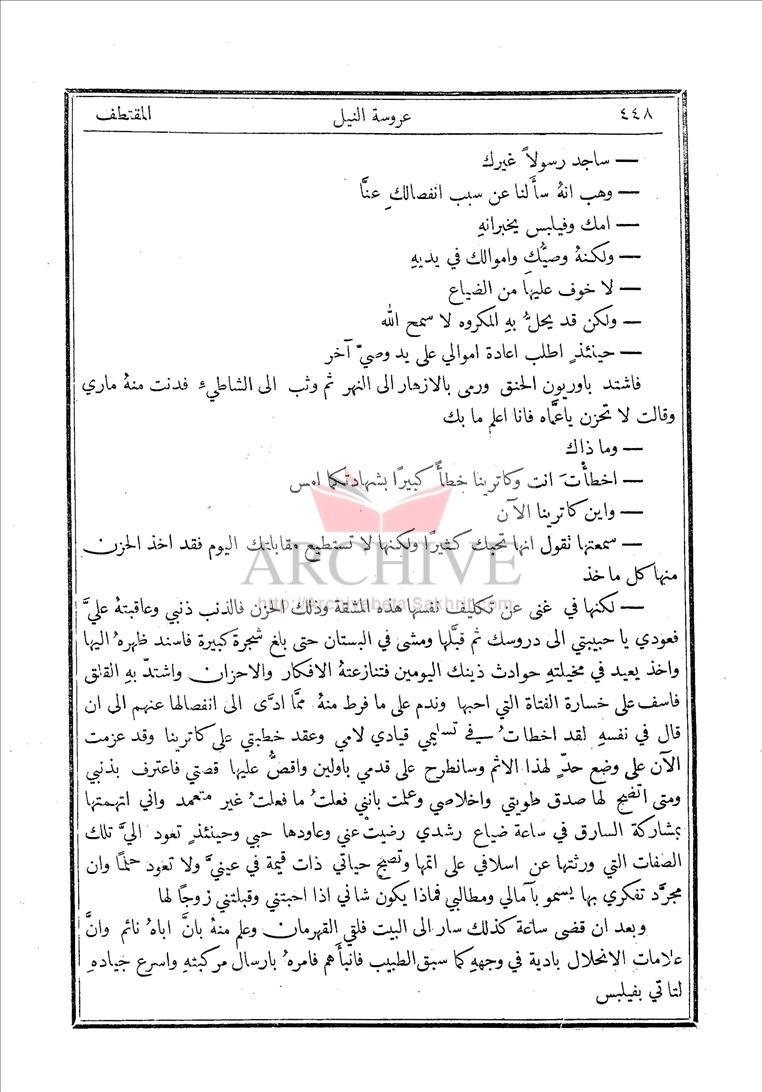 ٤٤٨ عروسة النيل المقتطف
— ساجد رسولاً غيرك
— وهب انهُ سأَلنا عن سبب انفصالكِ عنَّا
— امك وفيلبس يخبرانهِ
— ولكنهُ وصيُّكِ واموالك في يديهِ
— لا خوف عليها من الضياع
— ولكن قد يحلُّ بهِ المكروه لا سمح الله
— حينئذٍ اطلب اعادة اموالي على يد وصيّ آخر
فاشتد باوريون الحنق ورمى بالازهار الى النهر ثم وثب الى الشاطيء فدنت منهُ ماري
وقالت لا تحزن ياعمَّاه فانا اعلم ما بك
— وما ذاك
— اخطأْتَ انت وكاترينا خطأً كبيرًا بشهادتكما امس
— واين كاترينا الآن
— سمعتها تقول انها تحبك كثيرًا ولكنها لا تستطيع مقابلتك اليوم فقد اخذ الحزن
منها كل ماخذ
ARCHIVE
http://Archivebeta.Sakhrit.com
— لكنها في غنى عن تكليف نفسها هذه المشقة وذلك الحزن فالذنب ذنبي وعاقبتهُ عليَّ
فعودي يا حبيبتي الى دروسك ثم قبَّلها ومشى في البستان حتى بلغ شجرة كبيرة فاسند ظهرهُ اليها
واخذ يعيد في مخيلتهِ حوادث ذينك اليومين فتنازعتهُ الافكار والاحزان واشتدّ بهِ القلق
فاسف على خسارة الفتاة التي احبها وندم على ما فرط منهُ ممَّا ادَّى الى انفصالها عنهم الى ان
قال في نفسهِ لقد اخطاتُ في تسليمي قيادي لامي وعقد خطبتي على كاترينا وقد عزمت
الآن على وضع حدٍّ لهذا الاثم وسانطرح على قدمي باولين واقصُّ عليها قصتي فاعترف بذنبي
ومتى اتضح لها صدق طويتي واخلاصي وعلمت بانني فعلتُ ما فعلتُ غير متعمد واني اتهمتها
بمشاركة السارق في ساعة ضياع رشدي رضيتْ عني وعاودها حبي وحينئذٍ تعود اليَّ تلك
الصفات التي ورثتها عن اسلافي على اتمها وتصبح حياتي ذات قيمة في عينيَّ ولا تعود حلمًا وان
مجرَّد تفكري بها يسمو بآمالي ومطالبي فماذا يكون شاني اذا احبتني وقبلتني زوجًا لها
وبعد ان قضى ساعة كذلك سار الى البيت فلقي القهرمان وعلم منهُ بانَّ اباهُ نائم وانَّ
علامات الانحلال بادية في وجههِ كما سبق الطبيب فانبأَهم فامرهُ بارسال مركبتهِ واسرع جيادهِ
لتاتي بفيلبس